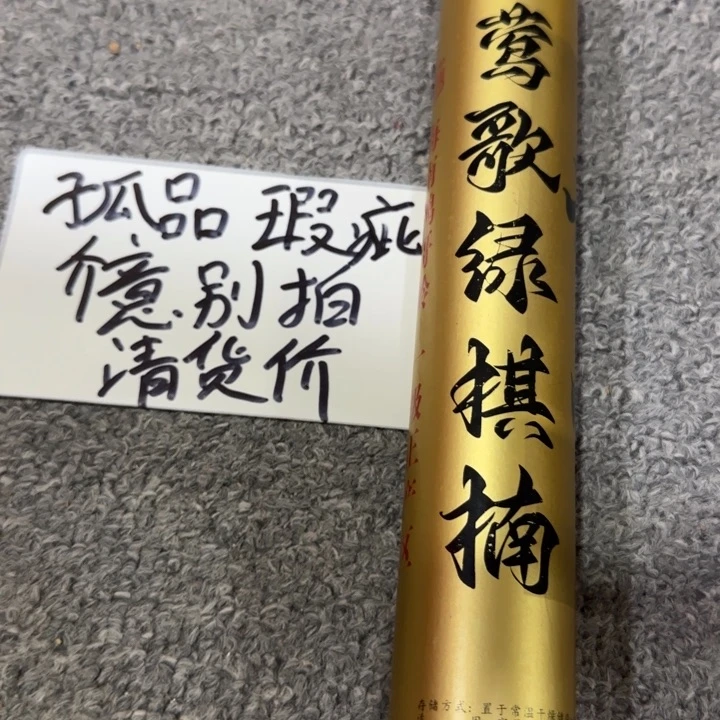 孤品 瑕疵
介意别拍
清货价
莺歌绿棋楠
存储方式:置于常温干燥